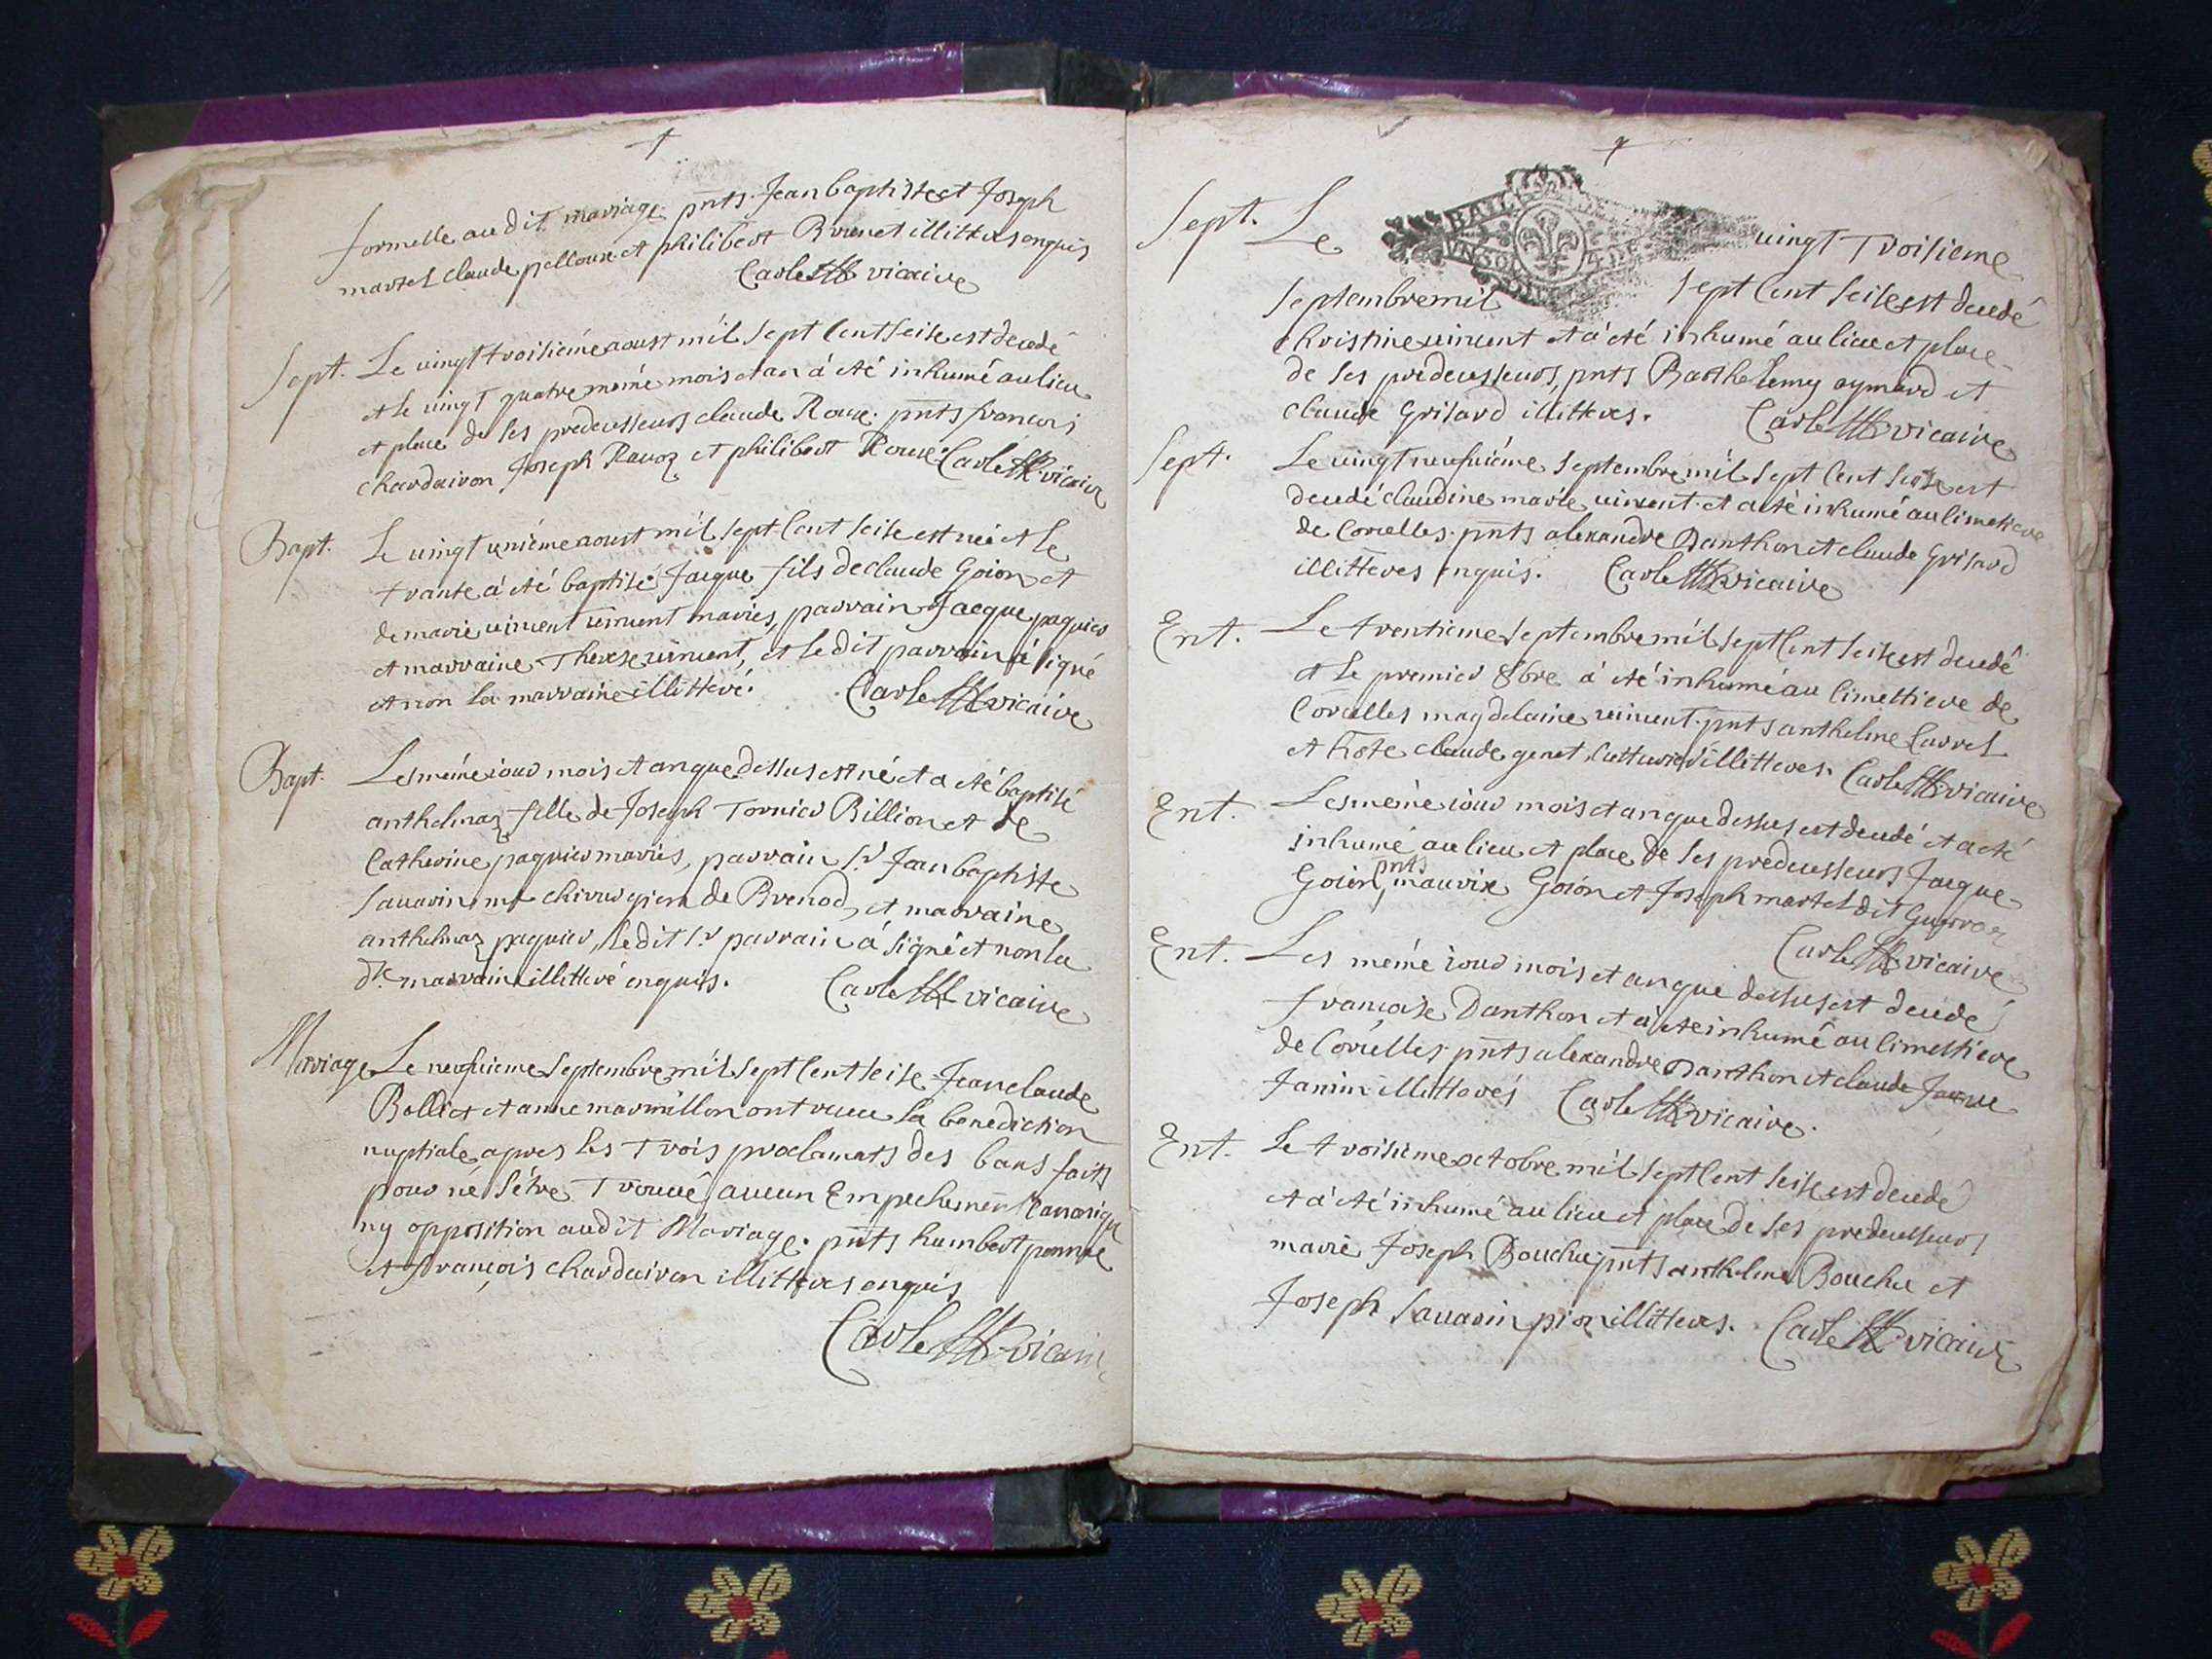 formelle audit mariage pnts Jean baptiste et Joseph
martel claude pelloux et philibert illitteres enquis
Carle vicaire
Sept. Le vingt troisième aoust mil sept cent seise est decedé
et le vingt quatre même mois et an à été inhumé au lieu
et place de ses predecesseurs claude Roux pnts francois
chardeiron Joseph Ravoz et philibert Roux Carle vicaire
Bapt. Le vingt unième aoust mil sept cent seise est né et le
trante à été baptisé Jacque fils de claude Goion et
de marie vincent vincent mariés, parrain Jacque paquier
et marraine Therese vincent, et ledit parrain à signé
et non la marraine illitteré. Carle vicaire
Bapt. Les même iour mois et an que dessus est né et a été baptisé
anthelmaz fille de Joseph Tornier Billion et de
Catherine paquier mariés, parrain sr Jean baptiste
Savarin me chirurgien de Brenod, et marraine
anthelmaz paquier, ledit sr parrain à signé et non la
dte marraine illitteré enquis. Carle vicaire
Mariage Le neufuieme Septembre mil sept cent seise Jean claude
Bolliet et anne marmillon ont receu la benediction
nuptiale apres les Trois proclamats des bans faits
pour né sétre Trouvé aucun Empechement Canonique
ny opposition audit Mariage. pnts humbert
et françois chardeiron illitteres enquis
Carle vicaire
Sept. Le vingt Troisieme
BAIL
Septembre mil sept cent seise est decedé
christine vincent et à été inhumé au lieu et place
de ses predecesseurs, pnts Barthelemy aymard et
claude Grisard illitteres. Carle vicaire
Sept. Le vingt neufuiéme Septembre mil sept cent seise est
decedé claudine marie vincent et a été inhumé au cimetiere
de Corcelles. pnts alexandre Danthon et claude Grisard
illitteres enquis. Carle vicaire
Ent. Le trentieme Septembre mil sept cent seise est decedé
et le premier 8bre à été inhumé au cimettiere de
Corcelles magdelaine vincent. pnts anthelme Carrel
et hoste claude genet illitteres. Carle vicaire
Ent. Les même iour mois et an que dessus est decedé et a été
inhumé au lieu et place de ses predecesseurs Jacque
Goion, pnts maurix Goion et Joseph martel dit
Carle vicaire
Ent. Les même iour mois et an que dessus est decedé
françoise Danthon et à été inhumé au cimettiere
de Corcelles pnts alexandre Danthon et claude
Janin illitterés Carle vicaire.
Ent. Le troisieme octobre mil sept cent seise est decedé
et à été inhumé au lieu et place de ses predecesseurs
marie Joseph Bouchu pnts anthelme Bouchu et
Joseph Savarin pion illitteres. Carle vicaire